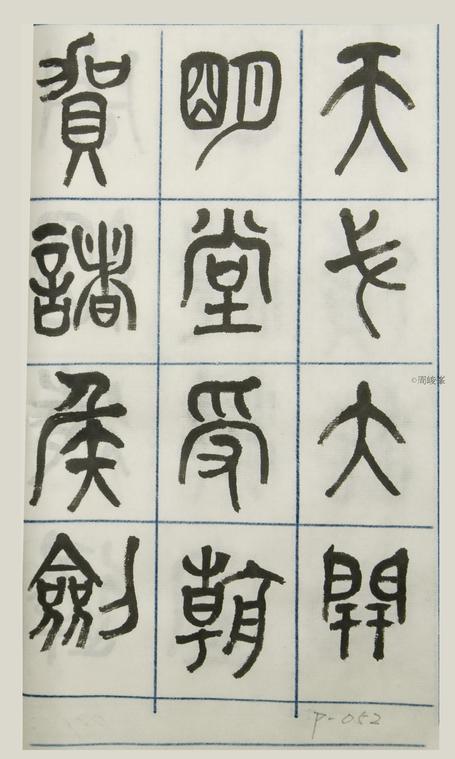 天弋大開
明堂受朝
賀諸侯劍
p-052
©周峻峯